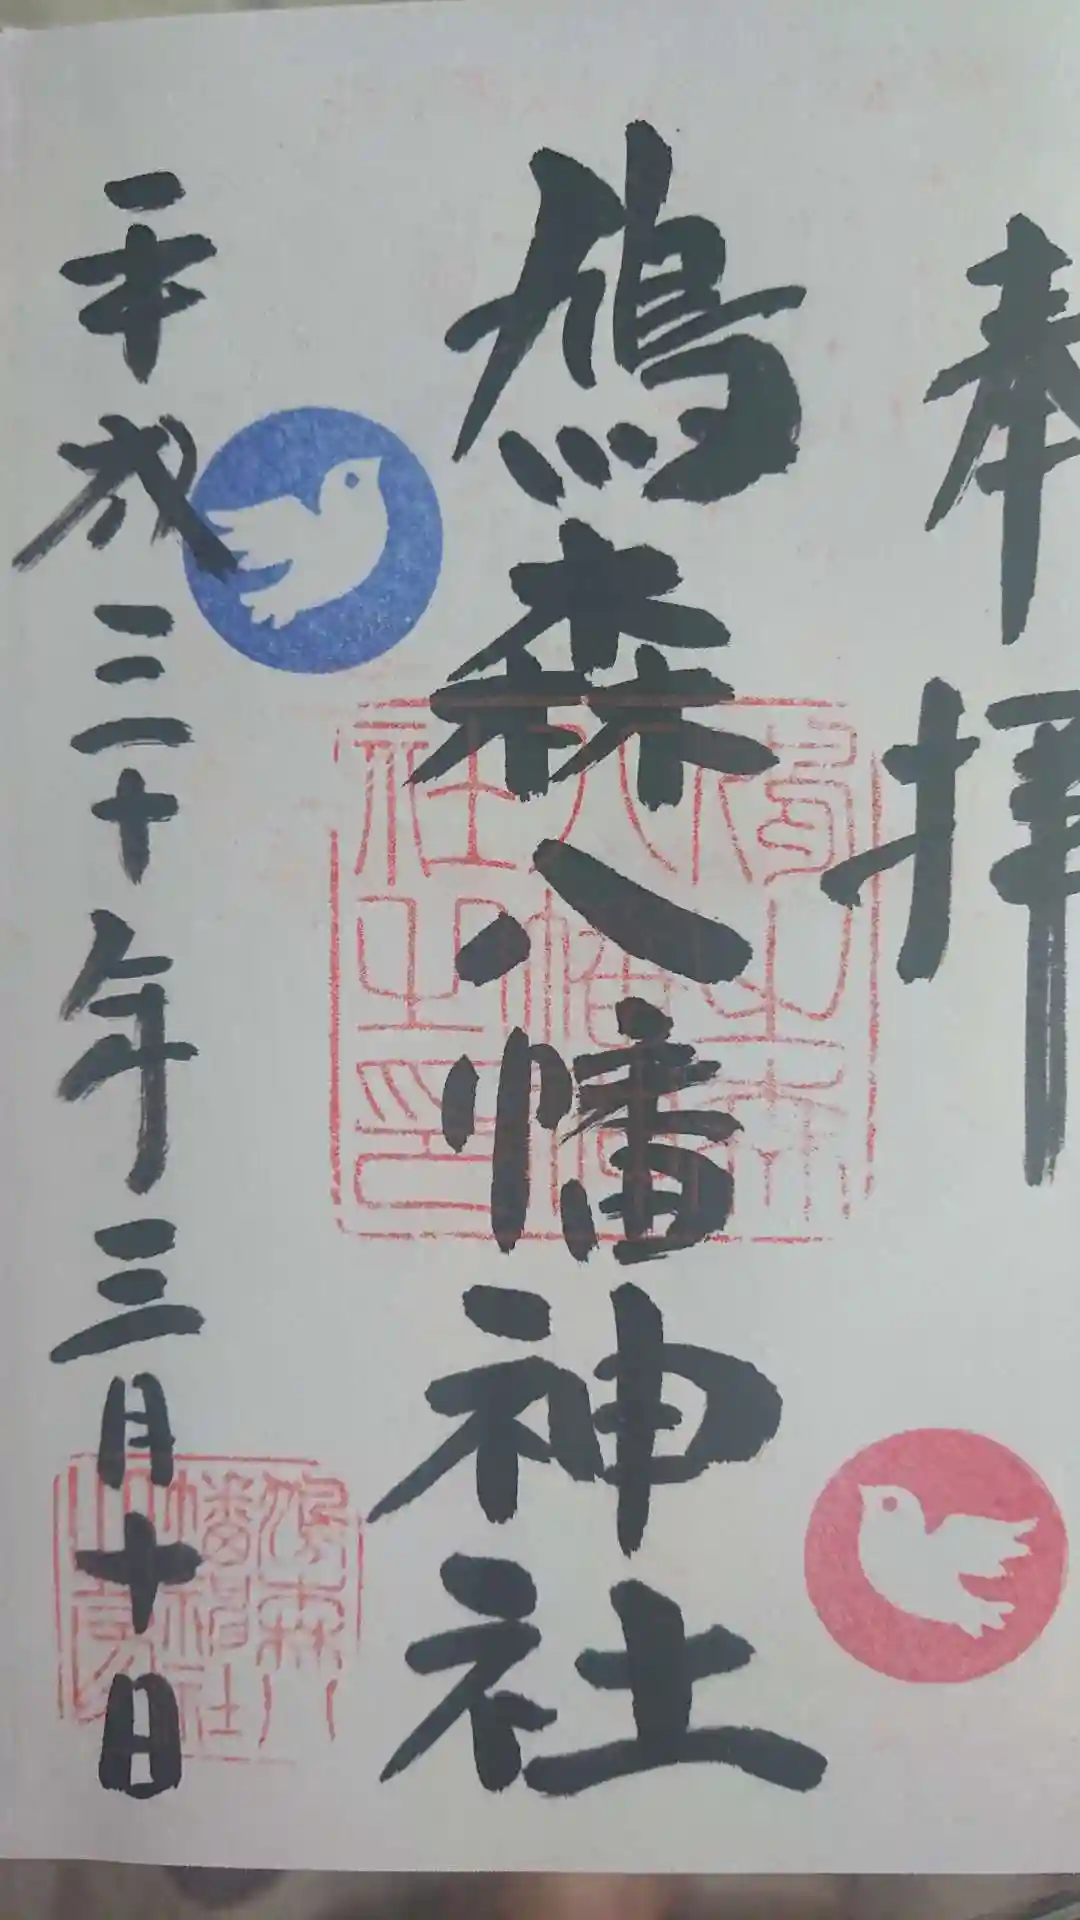 奉拝
鳩森八幡神社
平成三十年三月十日
鳩之森
八幡神
社之印
鳩森八
幡神社